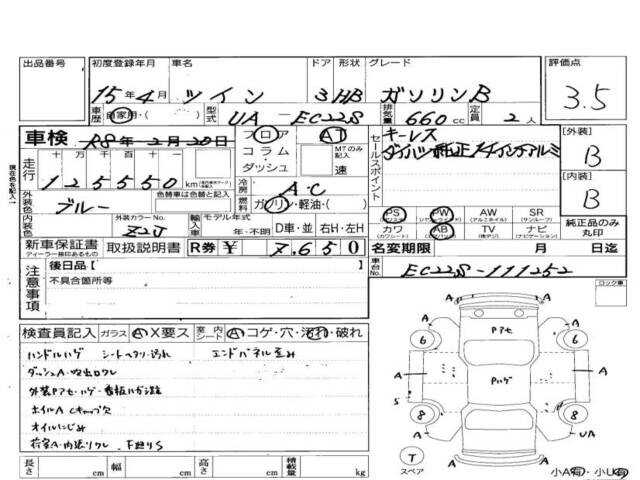 出品番号 初度登録年月 車名 ドア 形状 グレード 評価点
15年4月 ツイン 3HB ガソリンB 3.5
車歴 自家用・( ) 型式 UA-EC22S 排気量 660cc 定員 2人
車検 R8年2月20日 フロア AT キーレス [外装]
現在色を記入 コラム MTのみ記入 セールスポイント B
走行 十 万 千 百 十 一 ダッシュ 速
125550km 冷房 AC [内装]
外装色 ブルー 色替車は色替と記入 燃料 ガソリン・軽油・( ) B
内装色 外装カラーNo. Z2J 輸入車 モデル年式 年・不明 D車・並 右H・左H
PS PW AW SR
(パワーウィンド) (アルミホイル) (サンルーフ)
カワ AB TV ナビ 純正品のみ丸印
(カワシート) (エアバッグ) (ナビゲーション)
新車保証書 取扱説明書 R券 ¥ 7,650 名変期限 月 日迄
ディーラー捺印あるもの
注意事項 後日品[ ] 車台No. EC22S-111252
不具合箇所等 ロック車
検査員記入 ガラス A X要ス 室内シート A コゲ・穴・汚れ・破れ
ハンドルハゲ シートヘタリ・汚れ エンドパネル歪み
ダッシュA・吹出口ワレ
外装Pアセ・ハゲ・看板ハガシ跡
ホイルA Cキャップ欠
オイルにじみ
荷室A・内張リワレ 下廻りS
長さ cm 幅 cm 高さ cm 積載量 kg
A A
A Pアセ A
6 6
A Pハゲ A
S
8 8
A UA
T A A
スペア 小A有・小U有